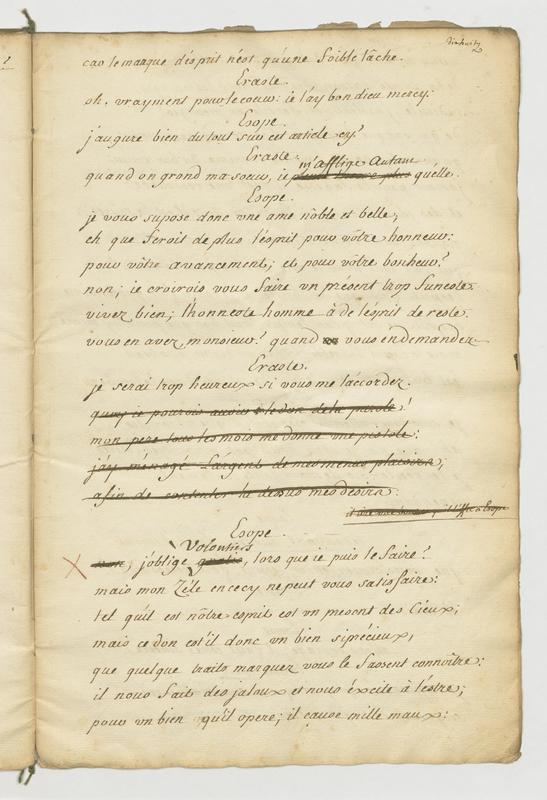 dixhuit
car le manque d'esprit n'est qu'une foible tâche.
Eraste.
oh, vrayment pour le coeur: ie l'ay bon dieu mercy:
Esope.
j'augure bien du tout sur cet article cy?
Eraste.
m'afflige Autant
quand on grond ma soeur, ie plus qu'elle.
Esope.
je vous supose donc une ame nôble et belle;
eh que feroit de plus l'esprit pour vôtre honneur:
pour vôtre avancement; et pour vôtre bonheur?
non; ie croirois vous faire un présent trop funeste.
vivez bien; l'honneste homme à de l'esprit de reste.
vous en avez, monsieur? quand vous en demandez
Eraste.
je serai trop heureux si vous me l'accordez.
quoy ie pourois avoir le don de la parole!
mon pere tous les mois me donne une pistole:
j'ay ménagé l'argent de mes menus plaisirs,
afin de contenter là dessus mes désirs.
Esope
Esope.
Volontiers
non, j'oblige, lors que ie puis le faire?
mais mon Zéle en cecy ne peut vous satisfaire:
tel qu'il est nôtre esprit est un présent des Cieux;
mais ce don est'il donc un bien si précieux,
que quelque traits marquez vous le fassent connoître:
il nous fait des jaloux et nous éxcite à l'estre;
pour un bien qu'il opere; il cause mille maux: